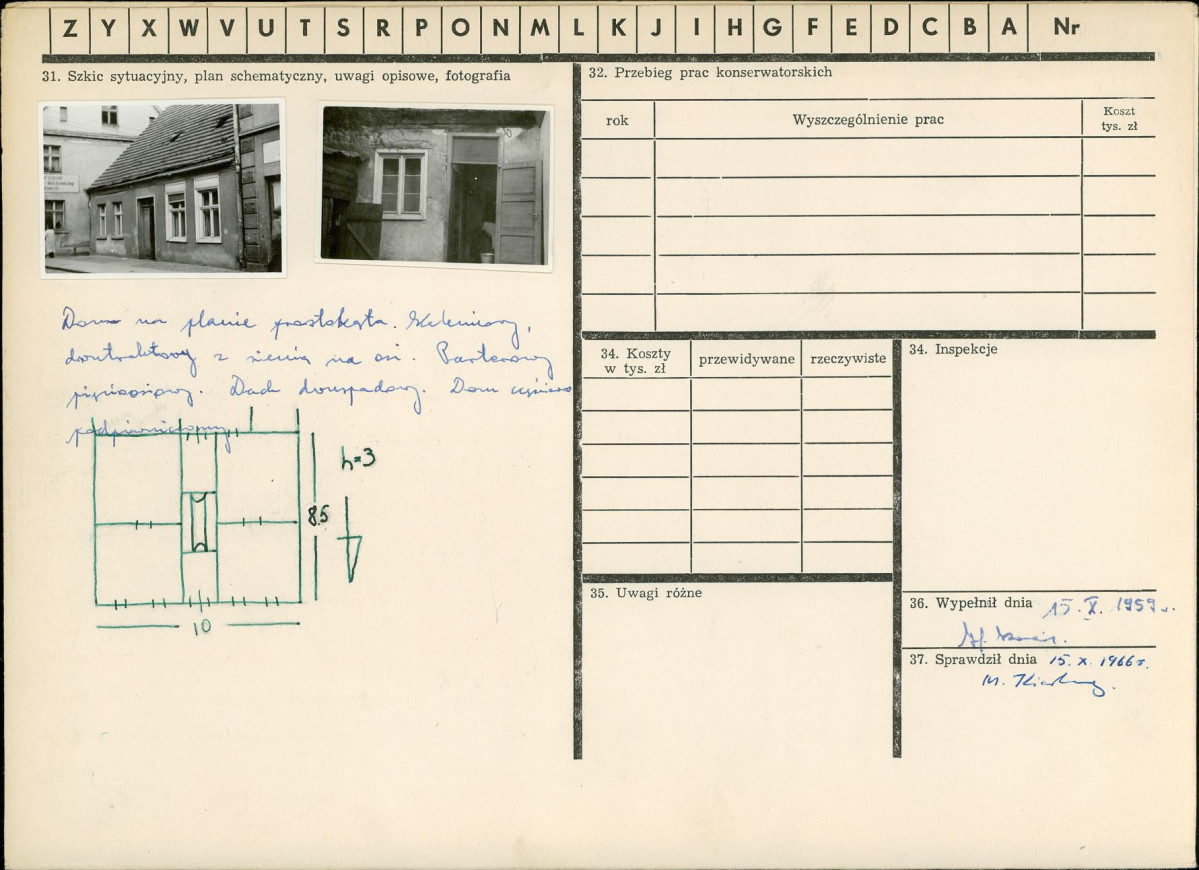 Z Y X W V U T S R P O N M L K J I H G F E D C B A Nr
31. Szkic sytuacyjny, plan schematyczny, uwagi opisowe, fotografia
Dom na planie prostokąta. Kalenicowy,
dwutraktowy z sienią na osi. Parterowy
pięcioosiowy. Dach dwuspadowy. Dom częściowo
podpiwniczony
h=3
8.5
10
32. Przebieg prac konserwatorskich
rok
Wyszczególnienie prac
Koszt
tys. zł
34. Koszty
w tys. zł
przewidywane
rzeczywiste
34. Inspekcje
35. Uwagi różne
36. Wypełnił dnia 15.X.1959 r.
37. Sprawdził dnia 15.X.1966 r.